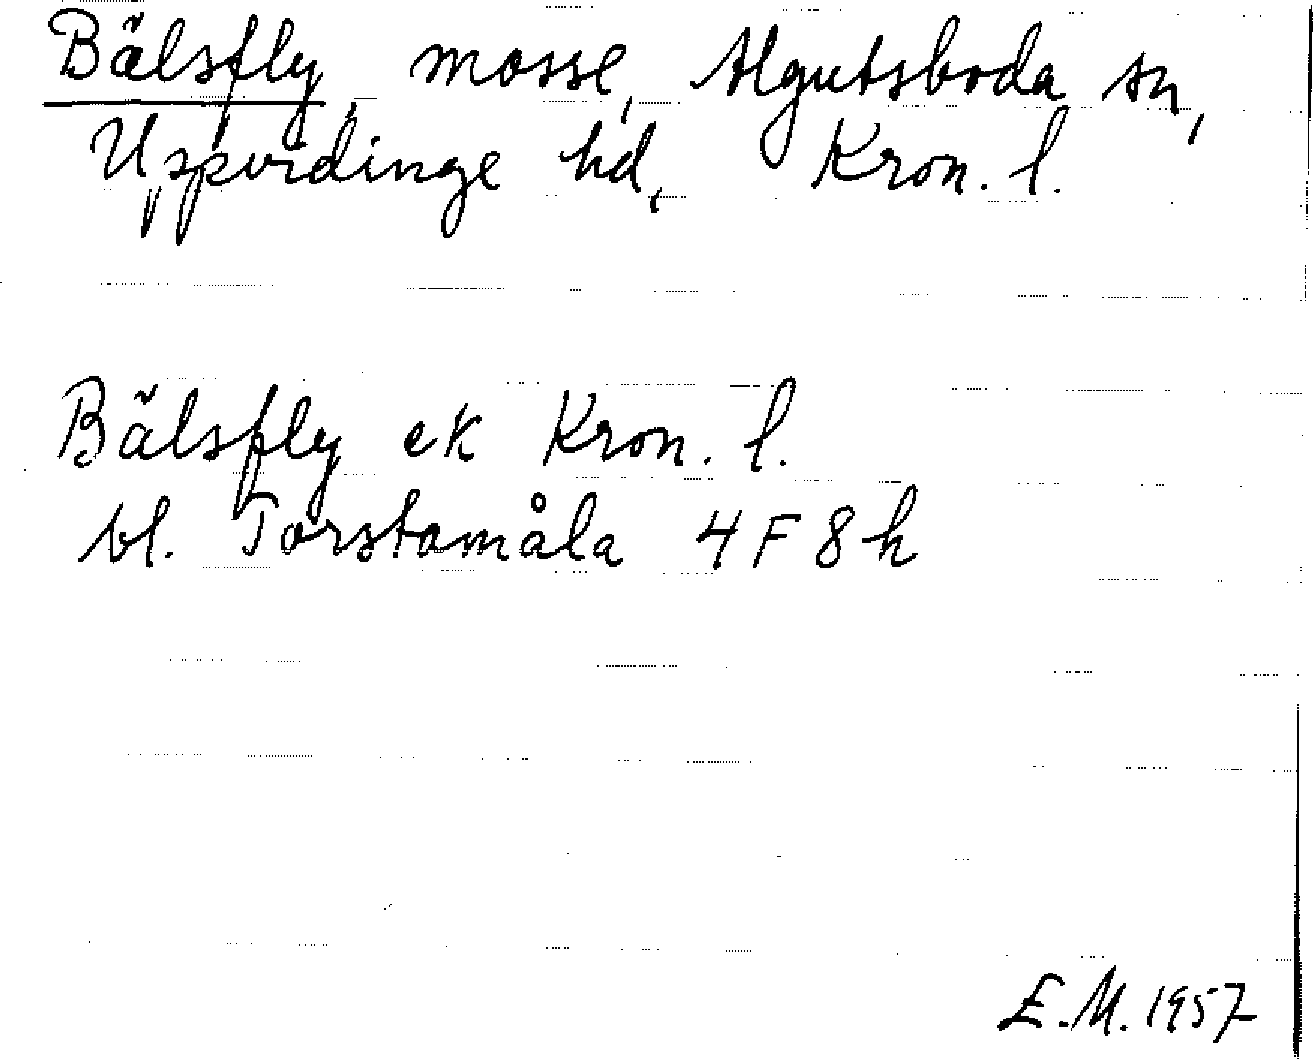 Bälsfly, mosse, Algutsboda sn,
Uppvidinge hd, Kron. l.
Bälsfly ek Kron. l.
bl. Torstamåla 4F8h
E.M. 1957